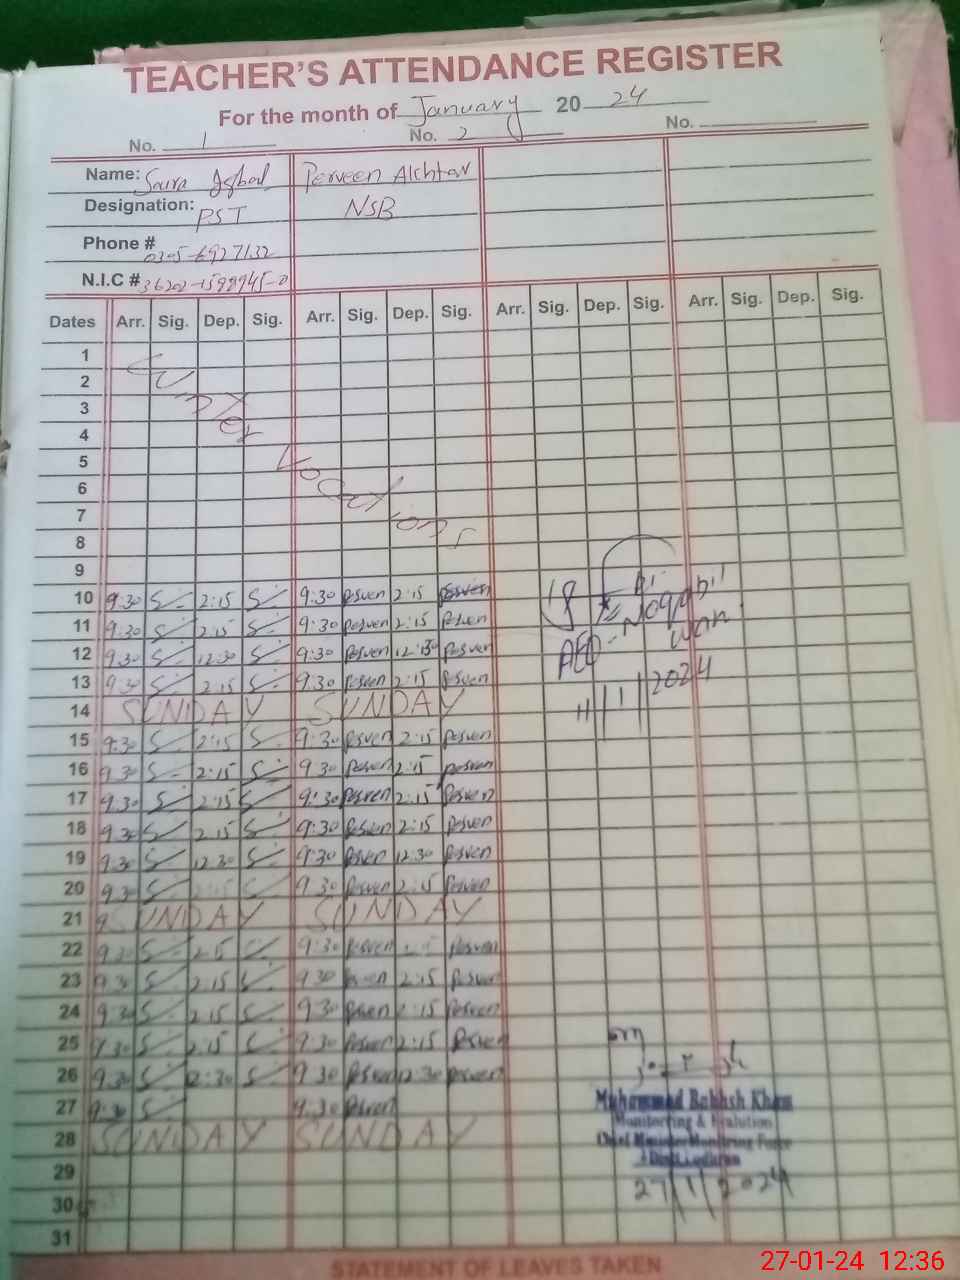 TEACHER'S ATTENDANCE REGISTER
For the month of January 20 24
No. 1 No. 2 No.
Name: Saira Iqbal Perveen Akhtar
Designation: PST NSB
Phone # 0305-6927132
N.I.C # 36202-1598945-0
Dates Arr. Sig. Dep. Sig. Arr. Sig. Dep. Sig. Arr. Sig. Dep. Sig. Arr. Sig. Dep. Sig.
1
2
3
4
5
6
7
8
9
Winter Vocations
10 9:30 S 2:15 S 9:30 Perven 2:15 Perven
11 9:30 S 2:15 S 9:30 Perven 2:15 Perven
12 9:30 S 12:30 S 9:30 Perven 12:30 Perven
13 9:30 S 2:15 S 9:30 Perven 2:15 Perven
14 SUNDAY SUNDAY
15 9:30 S 2:15 S 9:30 Perven 2:15 Perven
16 9:30 S 2:15 S 9:30 Perven 2:15 Perven
17 9:30 S 2:15 S 9:30 Perven 2:15 Perven
18 9:30 S 2:15 S 9:30 Perven 2:15 Perven
19 9:30 S 12:30 S 9:30 Perven 12:30 Perven
20 9:30 S 2:15 S 9:30 Perven 2:15 Perven
21 9 SUNDAY SUNDAY
22 9:30 S 2:15 S 9:30 Perven Perven
23 9:30 S 2:15 S 9:30 Perven 2:15 Perven
24 9:30 S 2:15 S 9:30 Perven 2:15 Perven
25 9:30 S 2:15 S 9:30 Perven 2:15 Perven
26 9:30 S 12:30 S 9:30 Perven 12:30 Perven
27 9:30 S 9:30 Perven
28 SUNDAY SUNDAY
29
30
31
AEO
11/1/2024
Muhammad Bakhsh Khan
Monitoring & Evalution
Chief Minister Monitring Force
Distt. Lodhran
27/1/2024
STATEMENT OF LEAVES TAKEN
27-01-24 12:36